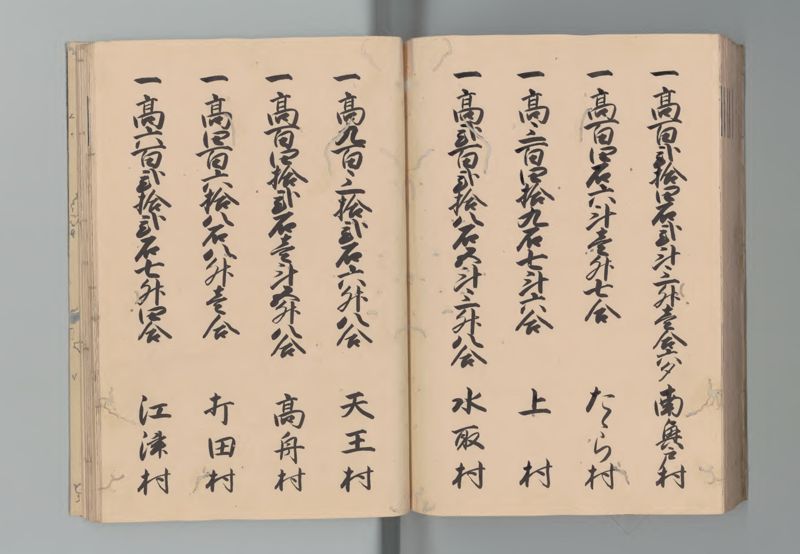 一高百弐拾四石弐斗三升壱合六夕 南無戸村
一高百四石六斗壱升七合 たゝら村
一高三百四拾九石七斗六合 上村
一高弐百弐拾八石五斗三升八合 水取村
一高九百三拾弐石六升八合 天王村
一高百四拾弐石壱斗五升八合 高舟村
一高四百六拾八石八升壱合 打田村
一高六百弐拾弐石七升四合 江津村